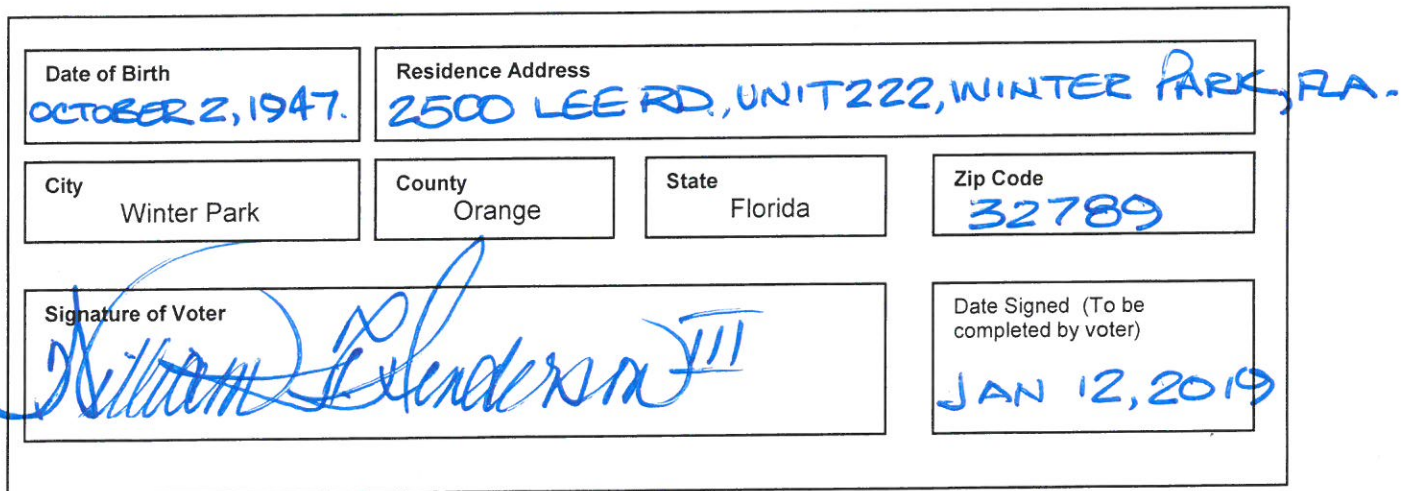 Date of Birth
OCTOBER 2, 1947.
Residence Address
2500 LEE RD., UNIT 222, WINTER PARK, FLA.
City
Winter Park
County
Orange
State
Florida
Zip Code
32789
Signature of Voter
William E Henderson III
Date Signed (To be
completed by voter)
JAN 12, 2019